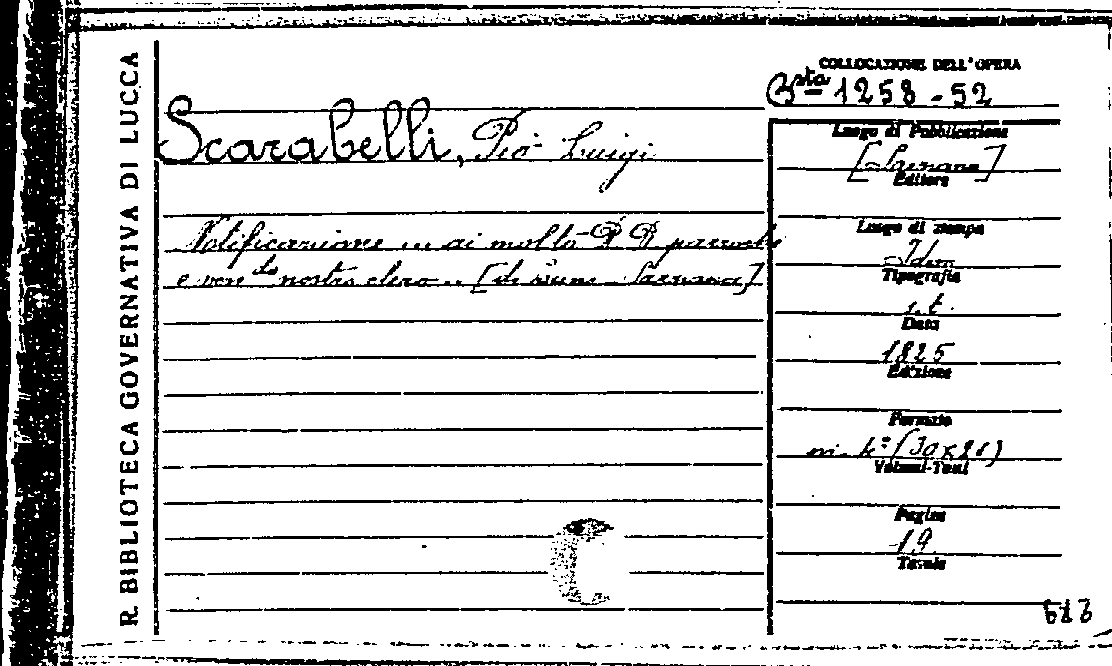 R. BIBLIOTECA GOVERNATIVA DI LUCCA
COLLOCAZIONE DELL'OPERA
B.sta 1258-52
Scarabelli, Pio Luigi
Notificazione ... ai molto P P parrochi
e ven.do nostro clero ... [di Sarzana]
Luogo di Pubblicazione
[Sarzana]
Editore
Luogo di stampa
Idem
Tipografia
s.t.
Data
1825
Edizione
Formato
in-4º (30x21)
Volumi-Tomi
Pagine
19
Tavole